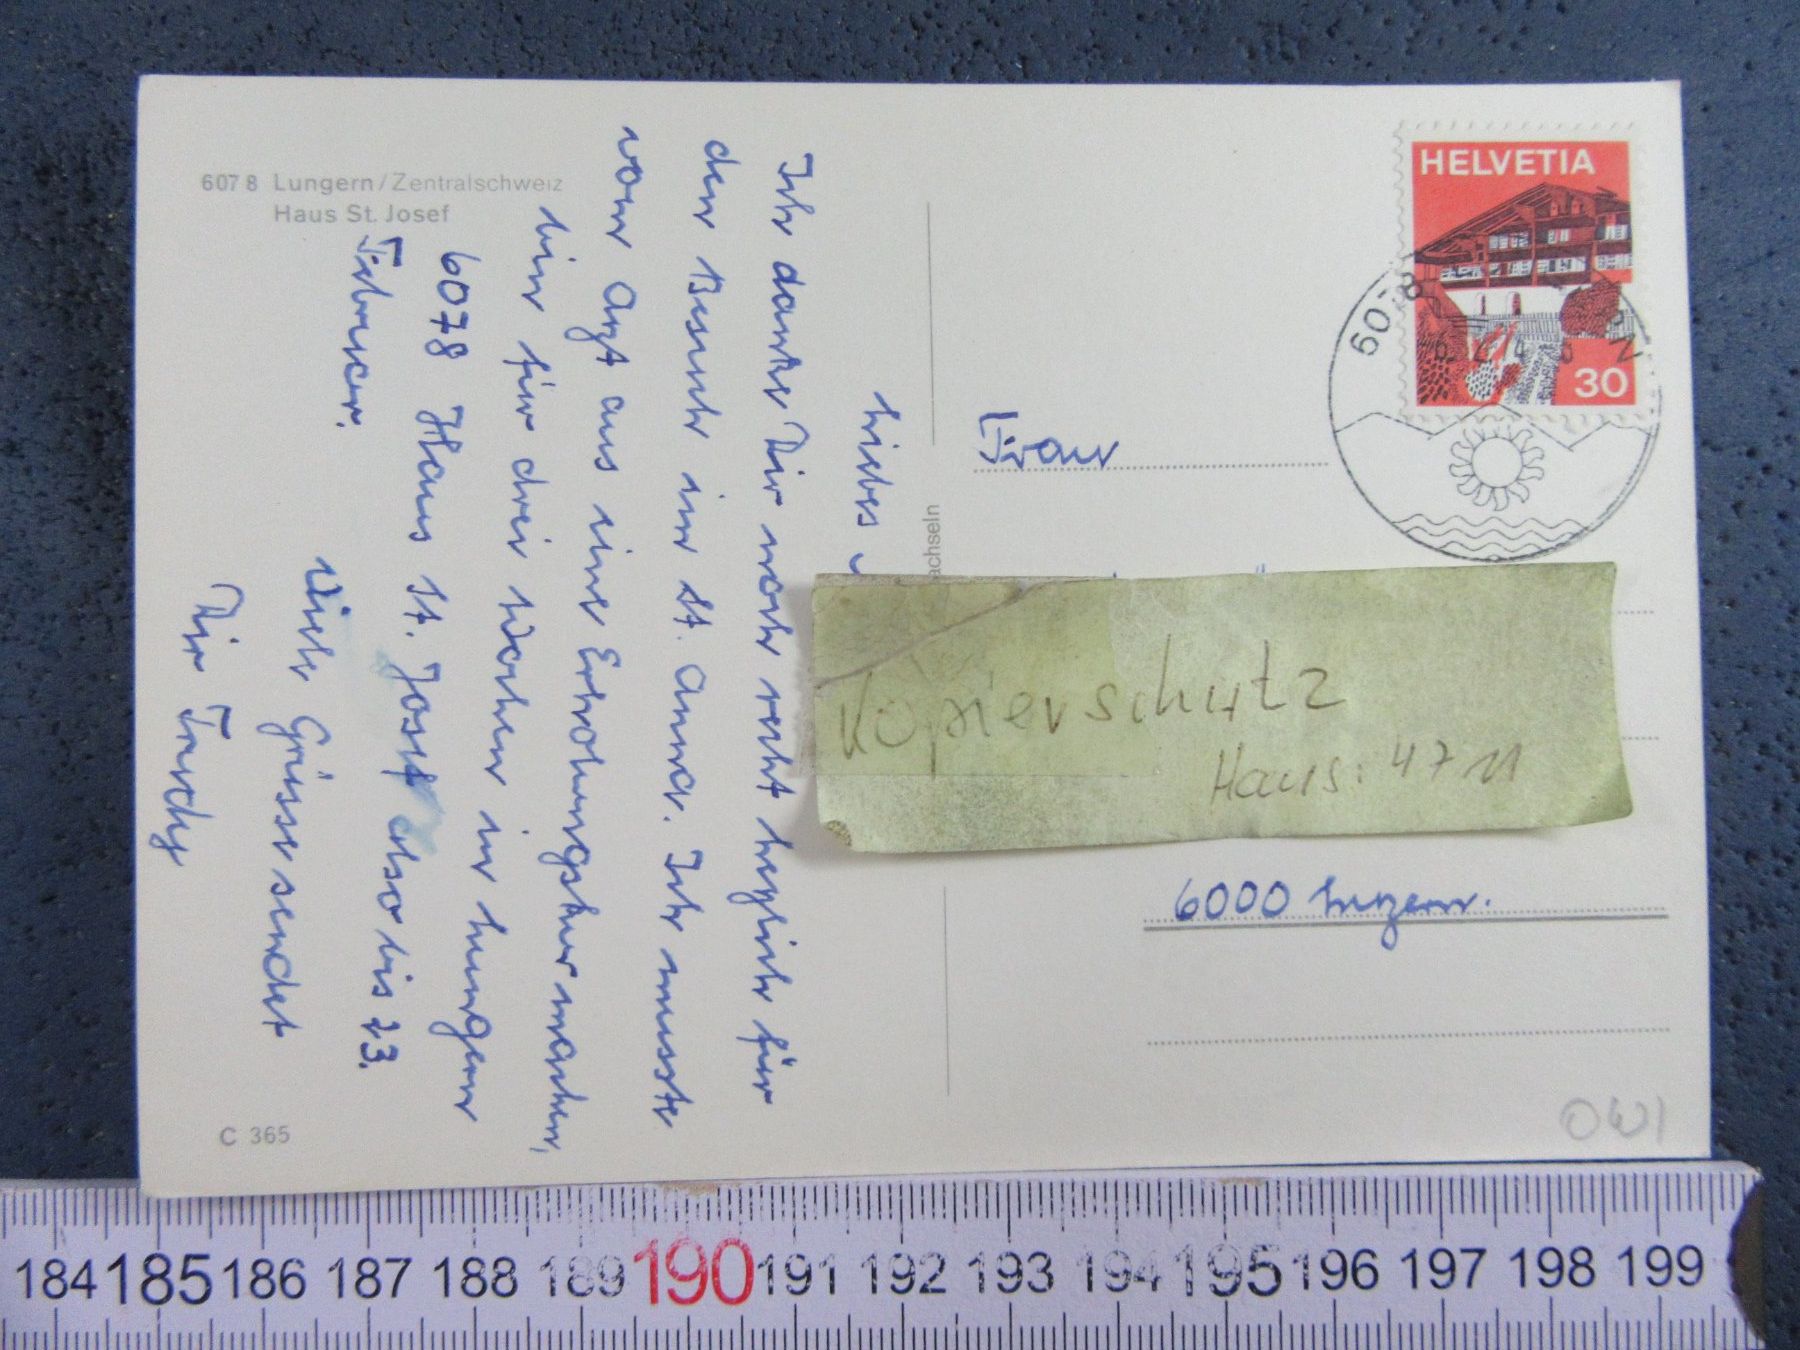 6078 Lungern/Zentralschweiz
Haus St. Josef
Liebes
Ich danke Dir noch recht herzlich für
den Besuch im St. Anna. Ich musste
vom Arzt aus eine Erholungskur machen,
bin für drei Wochen in Lungern
6078 Haus St. Josef also bis 23.
Februar.
Viele Grüsse sendet
Dir Trudy
C 365
achseln
HELVETIA
30
6078
Frau
Kopierschutz
Haus: 4711
6000 Luzern.
OW1
184 185 186 187 188 189 190 191 192 193 194 195 196 197 198 199